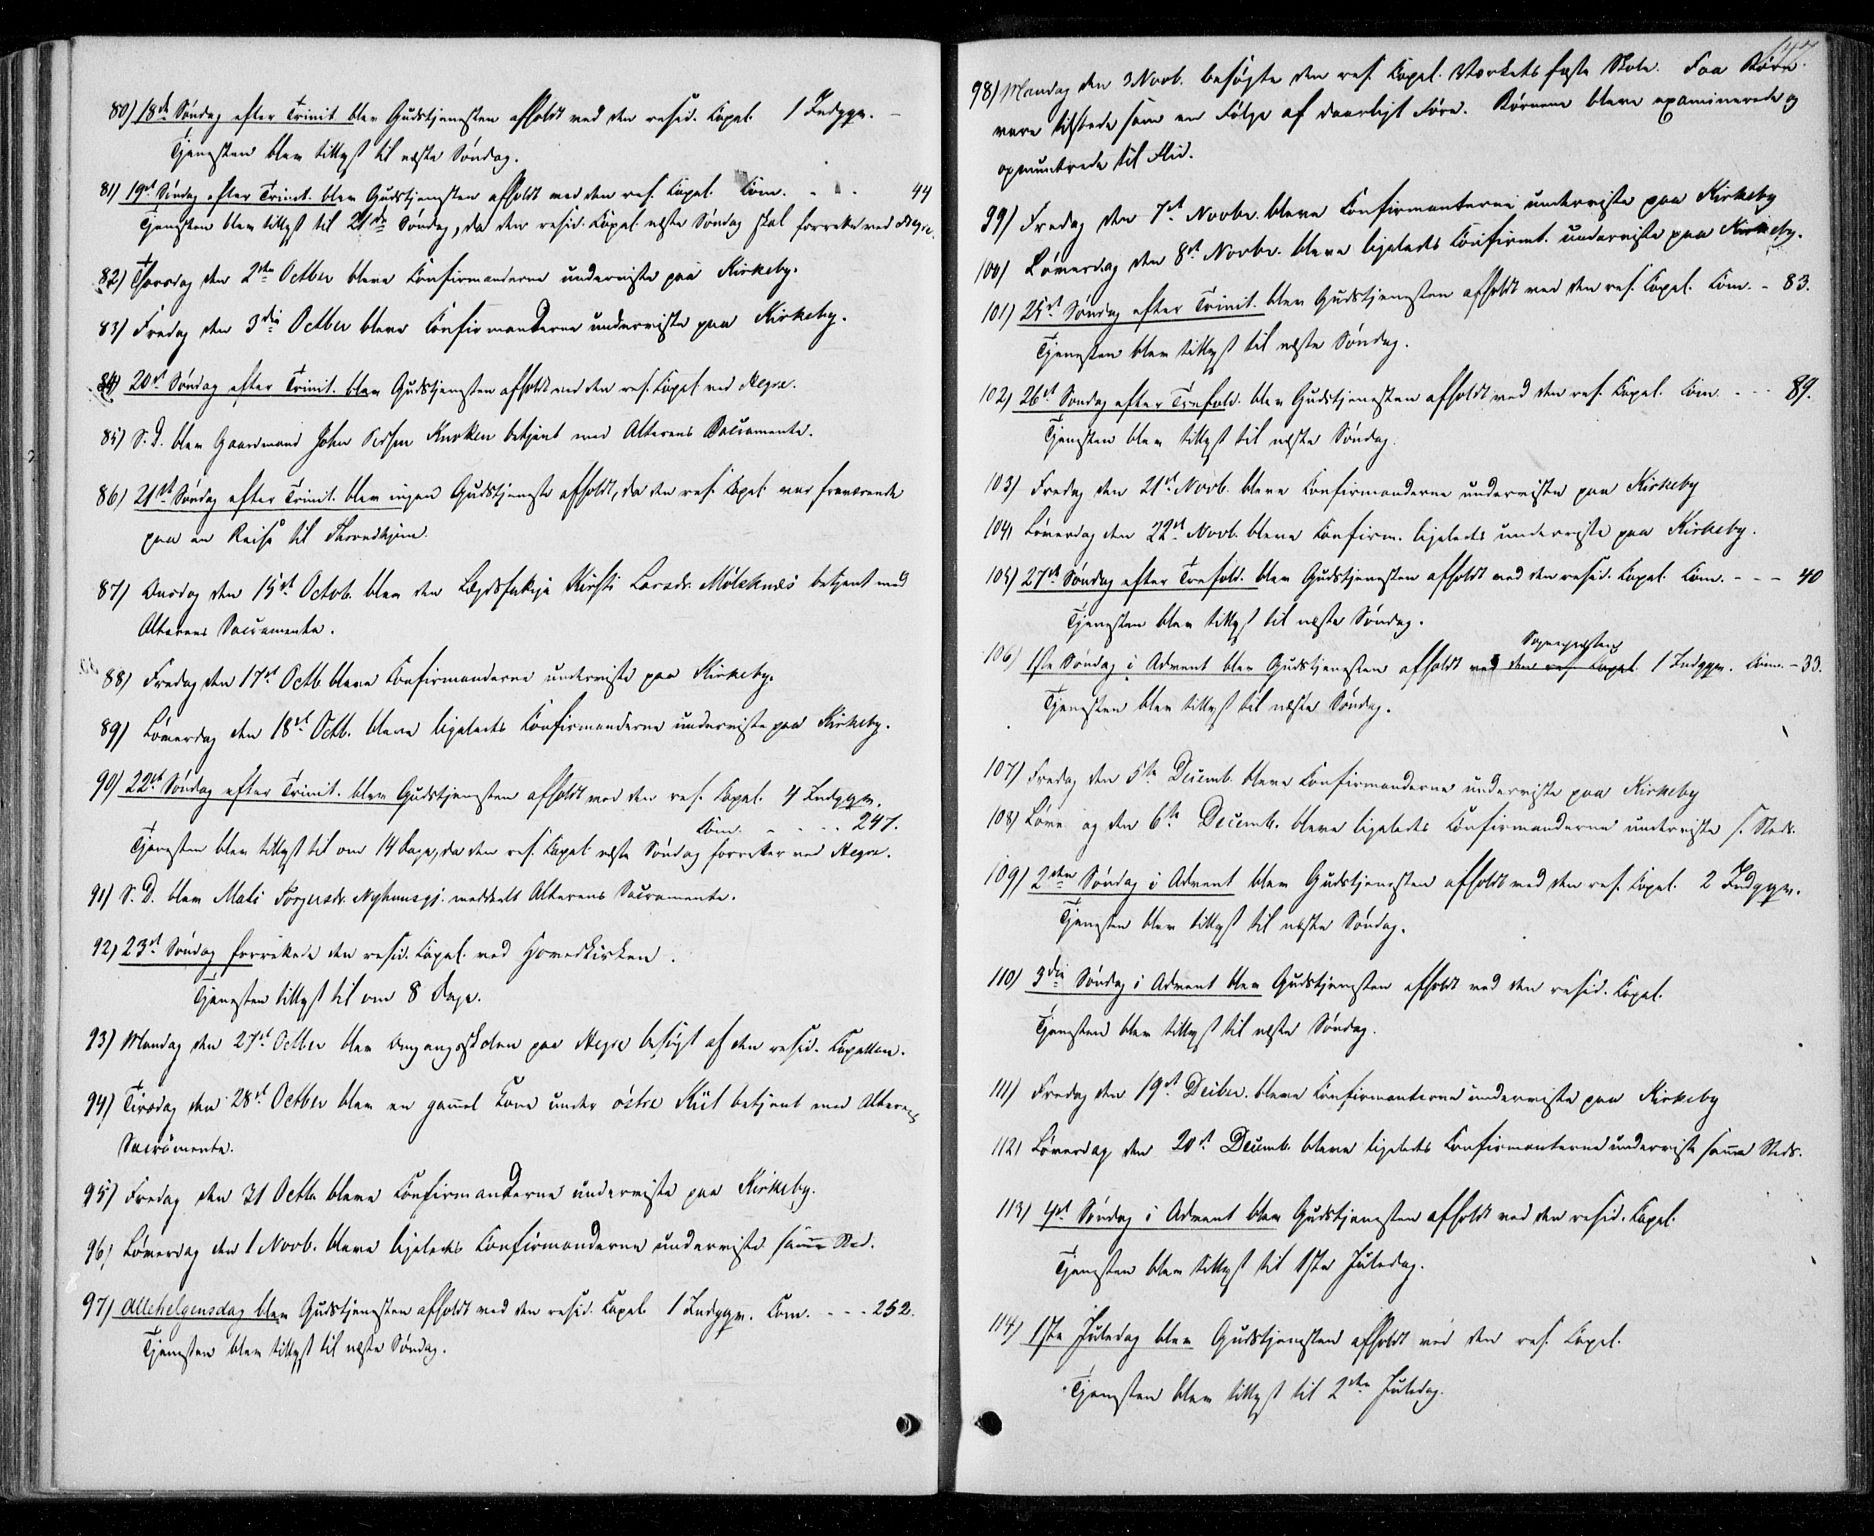 80) 18de Søndag efter Trinit. blev Gudstjenesten afholdt ved den resid. Capel. 1 Indggk. –
Tjenesten blev tillyst til næste Søndag.
81) 19de Søndag efter Trinit. blev Gudstjenesten afholdt ved den res. Capel. Com. - - - 44
Tjenesten blev tillyst til 21de Søndag, da den resid. Capel. næste Søndag skal forrette ved Hegre.
82) Thorsdag den 2den Octber bleve Confirmanderne underviste paa Kirkeby.
83) Fredag den 3die Octber bleve Confirmanderne underviste paa Kirkeby.
84) 20de Søndag efter Trinit. blev Gudstjenesten afholdt ved den res. Capel. ved Hegre.
85) S. D. blev Gaardmand John betjent med Alterens Sacramente.
86) 21de Søndag efter Trinit. blev ingen Gudstjeneste afholdt, da den res. Capel. var fraværende
paa en Reise til Throndhjem.
87) Onsdag den 15de Octob. blev den Kirsti Larsdr. betjent med
Alterens Sacramente.
88) Fredag den 17de Octb bleve Confirmanderne underviste paa Kirkeby.
89) Løverdag den 18de Octb. bleve ligeledes Confirmanderne underviste paa Kirkeby.
90) 22de Søndag efter Trinit. blev Gudstjenesten afholdt ved den res. Capel. 4 Indggk.
Com. - - - - 247.
Tjenesten blev tillyst til om 14 Dage, da den res. Capel. næste Søndag forretter ved Hegre.
91) S. D. blev Mali Torgersdr. meddeelt Alterens Sacramente.
92) 23de Søndag forrettede den resid. Capel. ved Hovedkirken.
Tjenesten tillyst til om 8 Dage.
93) Mandag den 27de Octber blev Omgangsskolen paa Hegre besøgt af den resid. Capellan.
94) Tirsdag den 28de Octber blev en gammel Kone under østre betjent med Alterens
Sacramente.
95) Fredag den 31 Octb bleve Confirmanderne underviste paa Kirkeby.
96) Løverdag den 1 Novb. bleve ligeledes Confirmanderne underviste samme Sted.
97) Allehelgensdag blev Gudstjenesten afholdt ved den resid. Capel. 1 Indggk. Com. - - - 252.
Tjenesten blev tillyst til næste Søndag.
147
98) Mandag den 3 Novb. besøgte den res. Capel. Værkets faste Skole. Faa Børn
vare tilstede som en Følge af daarligt Føre. Børnene bleve examinerede og
opmuntrede til Flid.
99) Fredag den 7de Novbr. bleve Confirmanterne underviste paa Kirkeby
100) Løverdag den 8de Novbr. bleve ligeledes Confirmt. underviste paa Kirkeby.
101) 25de Søndag efter Trinit. blev Gudstjenesten afholdt ved den res. Capel. Com. - 83.
Tjenesten blev tillyst til næste Søndag.
102) 26de Søndag efter Trefold. blev Gudstjenesten afholdt ved den res. Capel. Com. - - - 89.
Tjenesten blev tillyst til næste Søndag.
103) Fredag den 21de Novb. bleve Confirmanderne underviste paa Kirkeby
104) Løverdag den 22de Novb. bleve Confirm. ligeledes underviste paa Kirkeby.
105) 27de Søndag efter Trefold. blev Gudstjenesten afholdt ved den resid. Capel. Com. - - - 40
Tjenesten blev tillyst til næste Søndag.
Sognepræsten
106) 1ste Søndag i Advent blev Gudstjenesten afholdt ved den res. Capel. 1 Indggk. Com. - 33.
Tjenesten blev tillyst til næste Søndag.
107) Fredag den 5te Decemb. bleve Confirmanderne underviste paa Kirkeby
108) Løverdag den 6te Decemb. bleve ligeledes Confirmanderne underviste s. Sted.
109) 2den Søndag i Advent blev Gudstjenesten afholdt ved den res. Capel. 2 Indggk.
Tjenesten blev tillyst til næste Søndag.
110) 3die Søndag i Advent blev Gudstjenesten afholdt ved den resid. Capel.
Tjenesten blev tillyst til næste Søndag.
111) Fredag den 19de Decbr. bleve Confirmanterne underviste paa Kirkeby
112) Løverdag den 20de Decemb. bleve ligeledes Confirmanterne underviste samme Sted.
113) 4de Søndag i Advent blev Gudstjenesten afholdt ved den resid. Capel.
Tjenesten blev tillyst til 1ste Juledag.
114) 1ste Juledag blev Gudstjenesten afholdt ved den res. Capel.
Tjenesten blev tillyst til 2den Juledag.